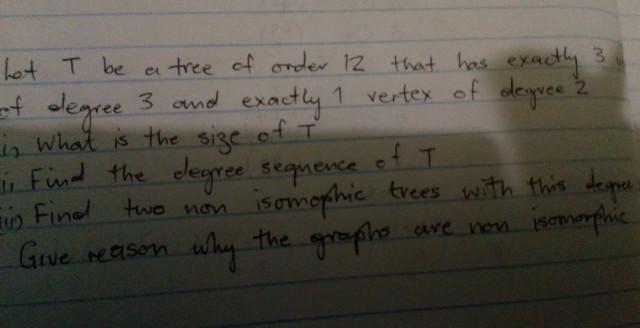 Let T be a tree of order 12 that has exactly 3
of degree 3 and exactly 1 vertex of degree 2
i, What is the size of T
ii, Find the degree sequence of T
iii) Find two non isomophic trees with this degree
Give reason why the graphs are non isomorphic